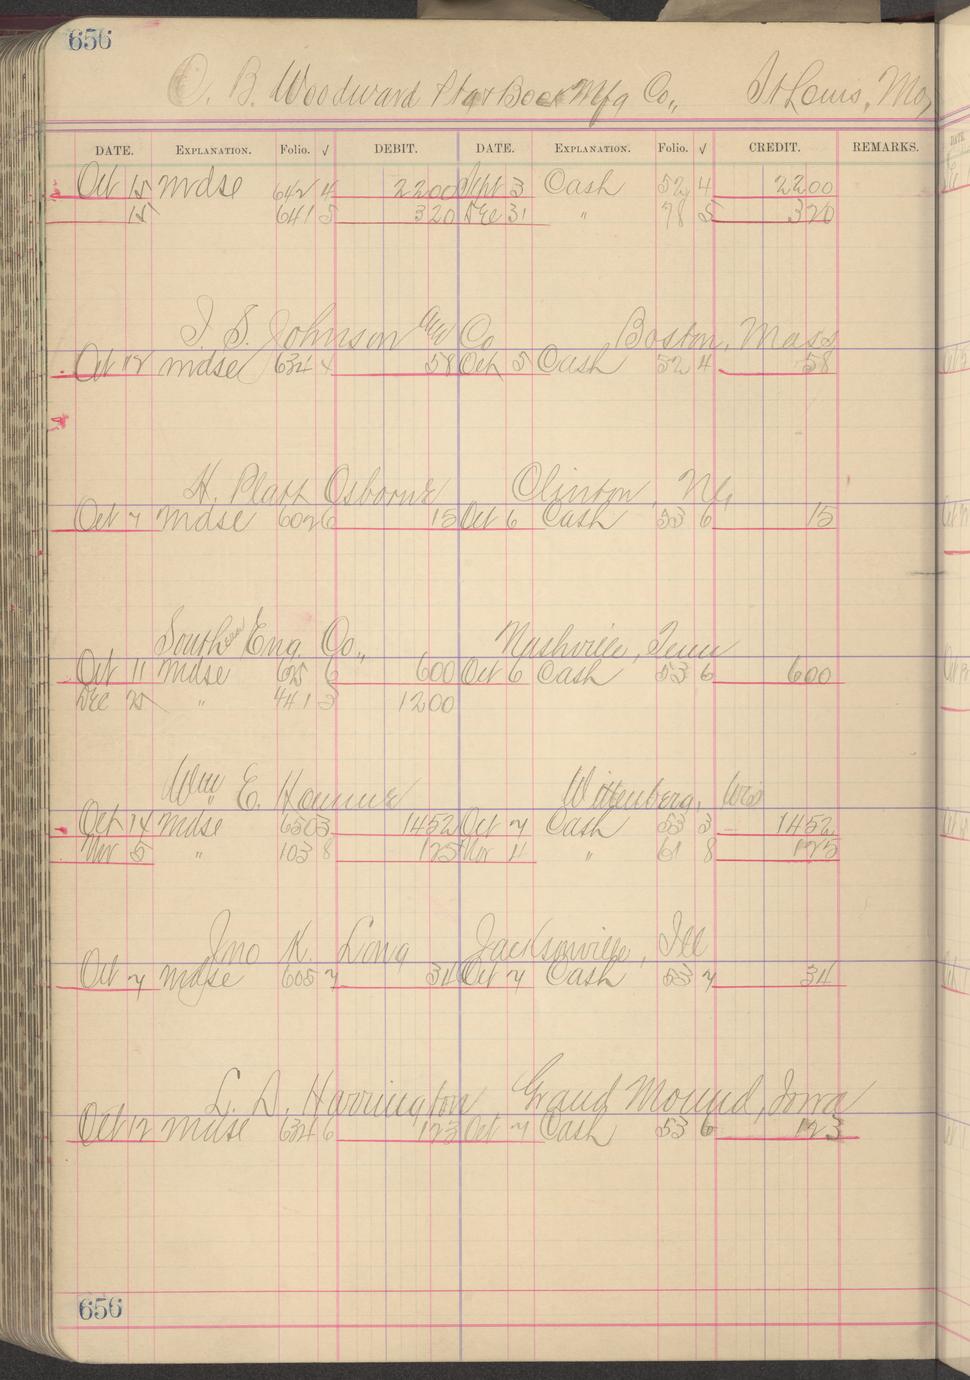 656
C. B. Woodward Ptg & Book Mfg Co., St Louis, Mo,
DATE. EXPLANATION. Folio. √ DEBIT. DATE. EXPLANATION. Folio. √ CREDIT. REMARKS.
Oct 15 Mdse 642 4 2200 Sept 3 Cash 52 4 2200
15 641 5 320 Dec 31 " 78 5 320
I. S. Johnson & Co Boston, Mass
Oct 12 Mdse 634 4 58 Oct 5 Cash 52 4 58
H. Platt Osborne Clinton, 
Oct 7 Mdse 602 6 15 Oct 6 Cash 53 6 15
Southern Eng. Co., Nashville, Tenn
Oct 11 Mdse 625 6 600 Oct 6 Cash 53 6 600
Dec 25 " 441 3 1200
Wm E. Wittenberg, Wis
Oct 14 Mdse 650 3 1452 Oct 7 Cash 53 3 1452
Nov 5 " 103 8 125 Nov 4 " 61 8 125
Jno K. Long Jacksonville, Ill
Oct 7 Mdse 605 7 34 Oct 7 Cash 53 7 34
L. D. Harrington Grand Mound, Iowa
Oct 12 Mdse 634 6 123 Oct 7 Cash 53 6 123
656